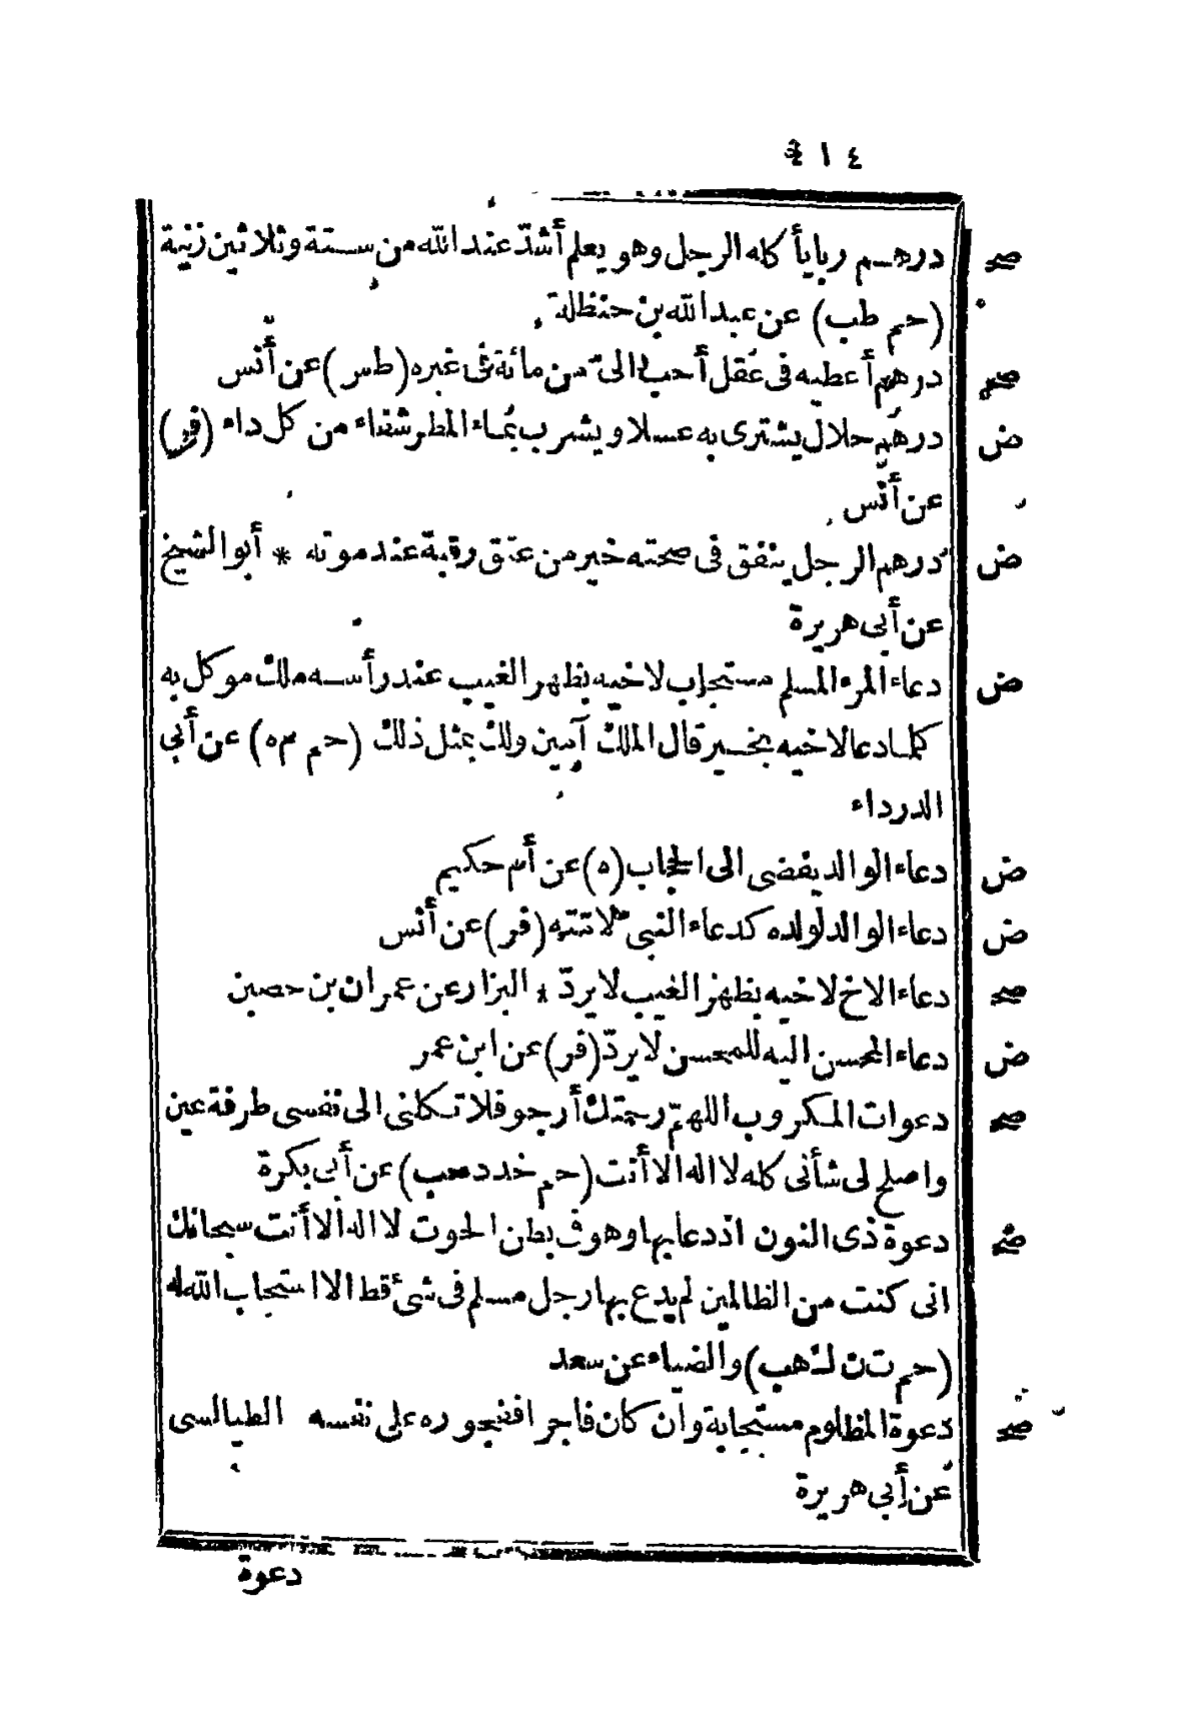 ٤١٤
صح درهم ربا يأكله الرجل وهو يعلم أشدّ عند الله من ستة وثلاثين زنية
(حم طب) عن عبد الله بن حنظلة
صح درهم أعطيه في عقل أحب الىّ من مائة في غيره (طس) عن أنس
ض درهم حلال يشترى به عسلا ويشرب بماء المطر شفاء من كل داء (فر)
عن أنس
ض درهم الرجل ينفق فى صحته خير من عتق رقبة عند موته * أبو الشيخ
عن أبى هريرة
ض دعاء المرء المسلم مستجاب لاخيه بظهر الغيب عند رأسه ملك موكل به
كلما دعا لاخيه بخير قال الملك آمين ولك بمثل ذلك (حم م ه) عن أبى
الدرداء
ض دعاء الوالد يفضى الى الحجاب (ه) عن أم حكيم
ض دعاء الوالد لولده كدعاء النبىّ لامّته (فر) عن أنس
صح دعاء الاخ لاخيه بظهر الغيب لا يردّ * البزار عن عمران بن حصين
ض دعاء المحسن اليه للمحسن لا يردّ (فر) عن ابن عمر
صح دعوات المكروب اللهمّ رحمتك أرجو فلا تكلنى الى نفسى طرفة عين
واصلح لى شأنى كله لا اله الا أنت (حم خد د حب) عن أبى بكرة
صح دعوة ذى النون اذ دعا بها وهو فى بطن الحوت لا اله الا أنت سبحانك
انى كنت من الظالمين لم يدع بها رجل مسلم فى شئ قط الا استجاب الله له
(حم ت ن ك هب) والضياء عن سعد
صح دعوة المظلوم مستجابة وان كان فاجرا ففجوره على نفسه الطيالسى
عن أبى هريرة
دعوة